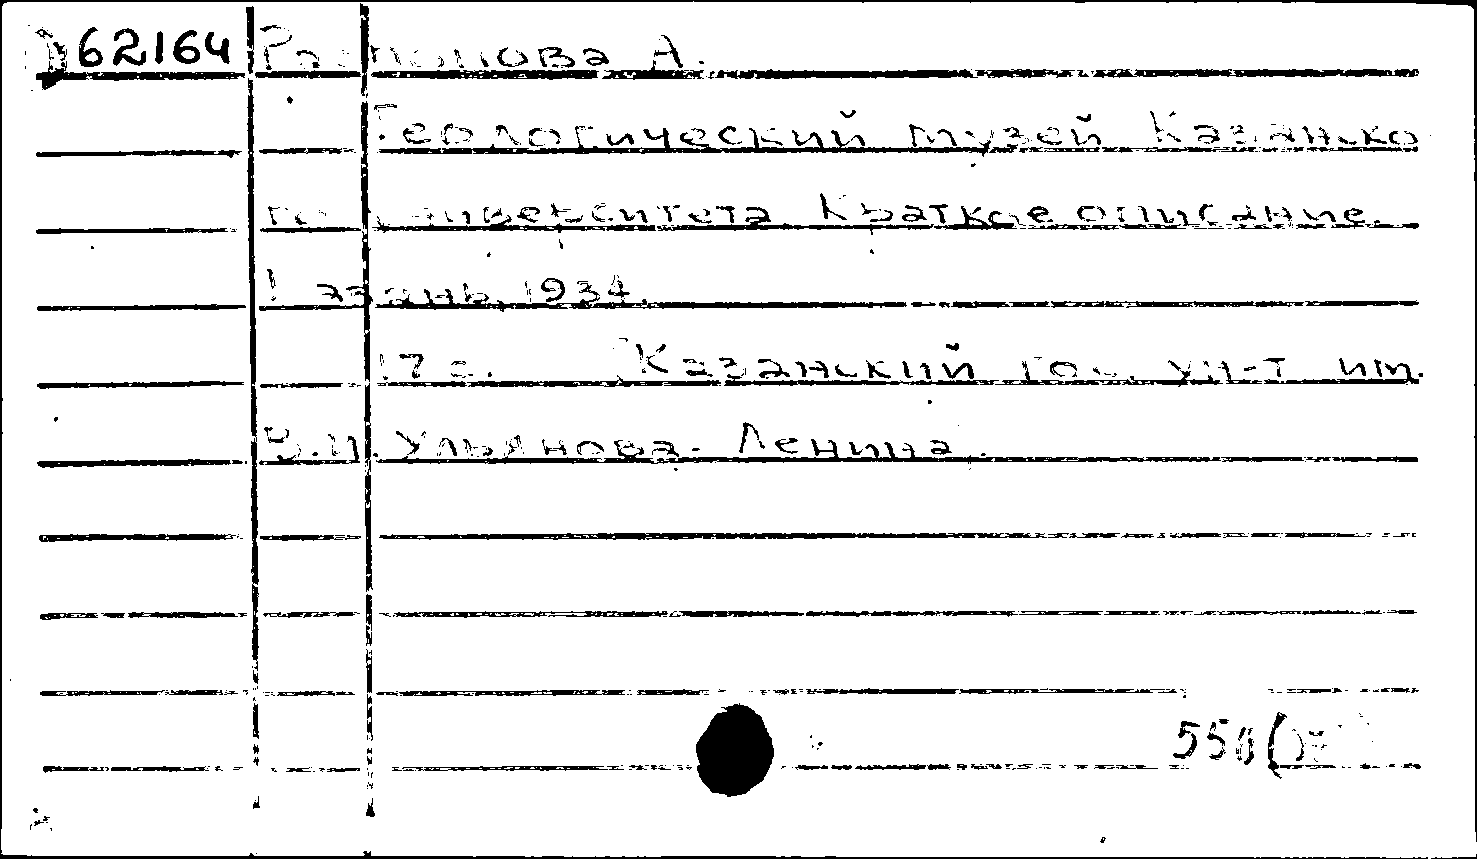 62164 А.
Геологический музей Казанско
го университета. Краткое описание.
Казань, 1934.
17 с. [Казанский гос. ун-т им.
В.И. Ульянова-Ленина.